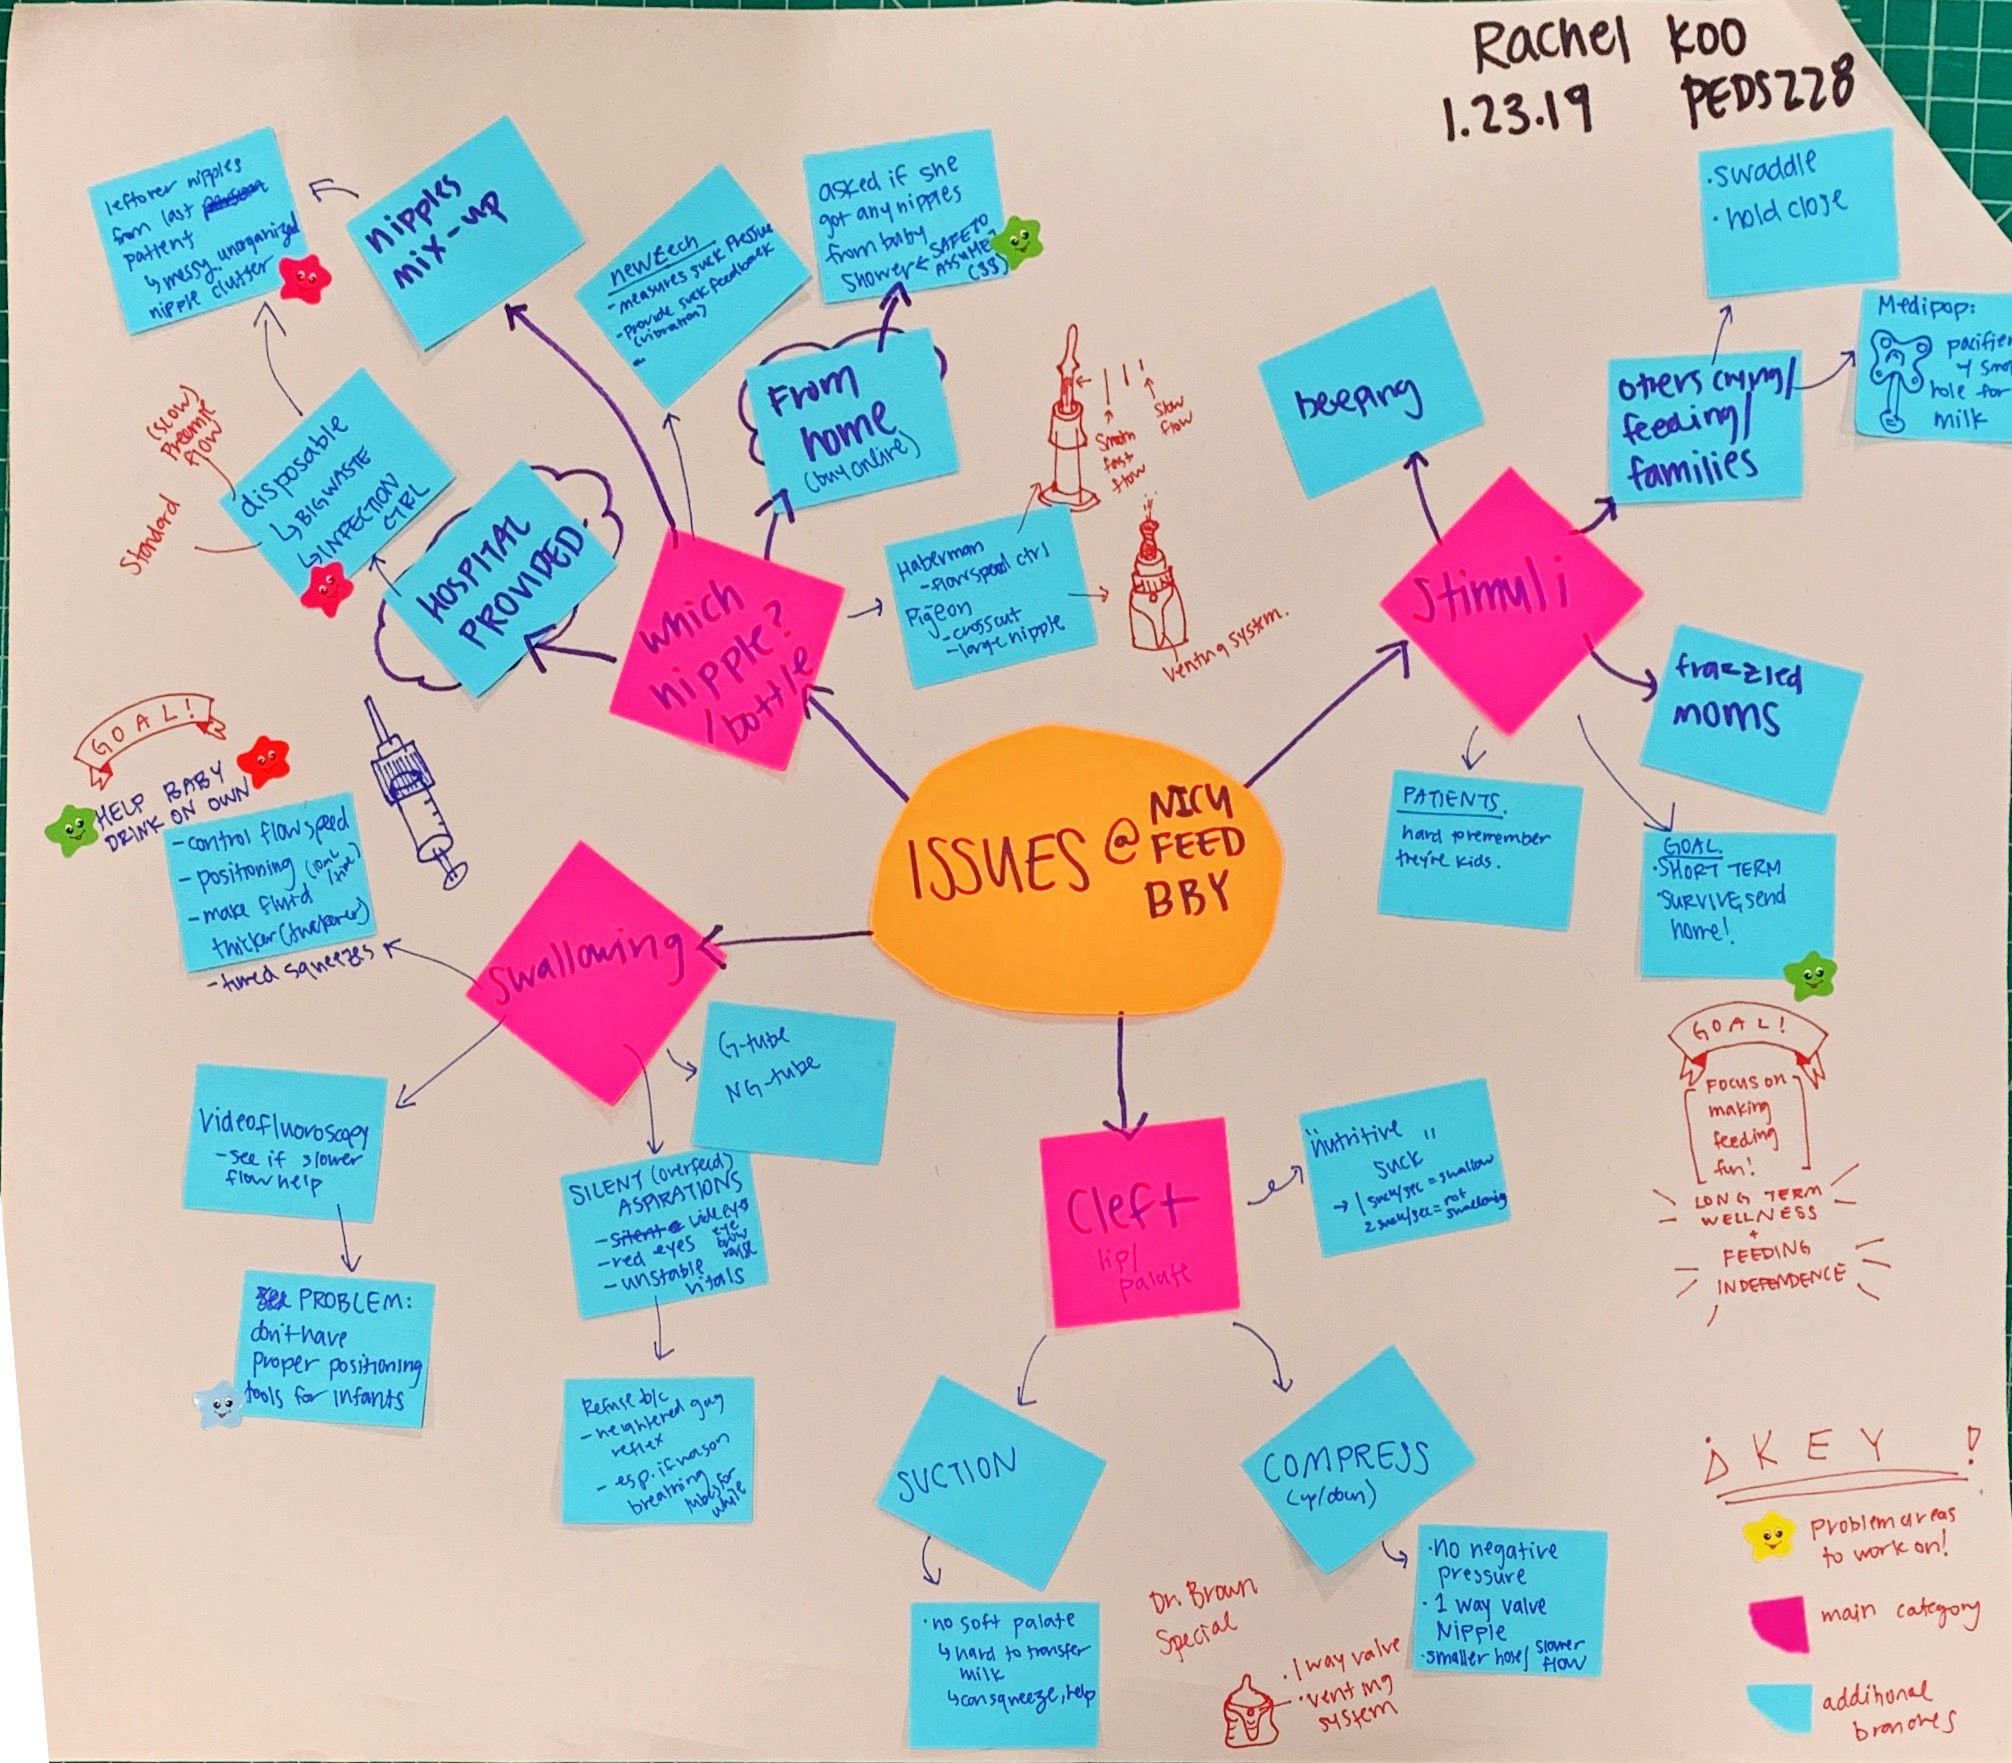 Rachel Koo
1.23.19 PEDS228
leftover nipples
from last
patient
↳ messy, unorganized
nipple clutter
nipples
mix-up
new tech
- measures suck pressure
- provide suck feedback
(vibration)
asked if she
got any nipples
from baby
shower ← SAFE TO
ASSUME?
($$)
From
home
(buy online)
(slow)
Preemie
flow
Standard
disposable
↳ BIG WASTE
↳ INFECTION
CTRL
HOSPITAL
PROVIDED
which
nipple?
/bottle
Haberman
- flow speed ctrl
Pigeon
- crosscut
- large nipple
fast
flow
slow
flow
venting system.
· swaddle
· hold close
Medipop:
pacifier
hole for
milk
beeping
others crying/
feeding/
families
Stimuli
frazzled
moms
PATIENTS.
hard to remember
they're kids.
GOAL
· SHORT TERM
· SURVIVE, send
home!
GOAL!
FOCUS on
making
feeding
fun!
LONG TERM
WELLNESS
+
FEEDING
INDEPENDENCE
ISSUES @ NICU
FEED
BBY
GOAL!
HELP BABY
DRINK ON OWN
- control flow speed
- positioning (10mL
/time)
- make fluid
thicker (thickener)
- timed squeezes
Swallowing
G-tube
NG-tube
Videofluoroscopy
- see if slower
flow help
PROBLEM:
don't have
proper positioning
tools for infants
SILENT (overfeed)
ASPIRATIONS
- silent wide eyes
- red eyes eye
brow
raise
- unstable
vitals
Refuse b/c
- heightened gag
reflex
- esp. if was on
breathing
tubes for
while
Cleft
lip/
palate
"nutritive"
suck
→ 1 suck/sec = swallow
2 suck/sec = not
swallowing
SUCTION
· no soft palate
↳ hard to transfer
milk
↳ can squeeze, help
COMPRESS
(up/down)
· no negative
pressure
· 1 way valve
Nipple
· smaller hole/ slower
flow
Dr. Brown
Special
· 1 way valve
· venting
system
KEY!
problem areas
to work on!
main category
additional
branches